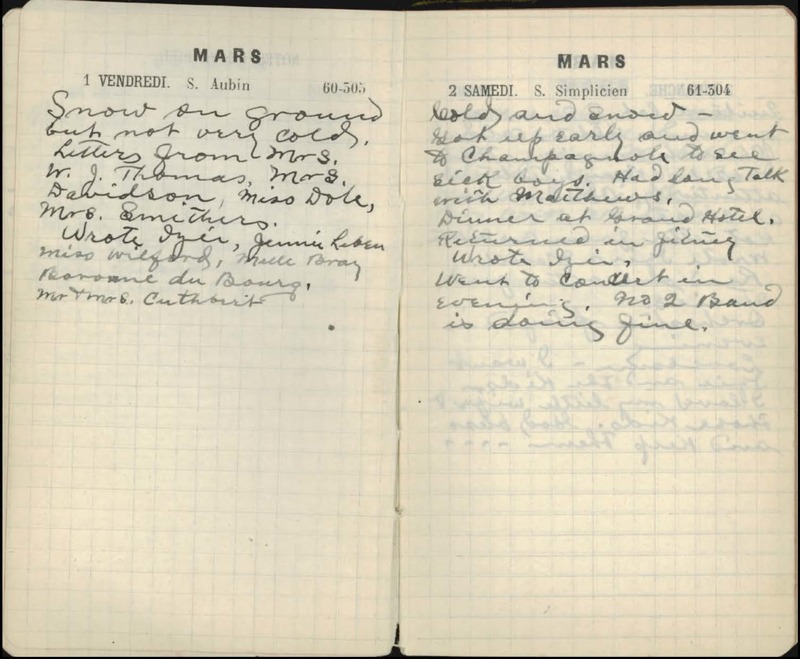 MARS
1 VENDREDI. S. Aubin 60-305
Snow on ground
but not very cold.
Letters from Mrs.
W. J. Thomas, Mrs.
Davidson, Miss Dole,
Mrs. Smithers.
Wrote Izie, Jennie
Miss Wilford, Mlle Bray
Baronne du Bourg.
Mr & Mrs. Cuthbert
MARS
2 SAMEDI. S. Simplicien 61-304
Cold and snow -
Got up early and went
to Champagnole to see
sick boys. Had long talk
with Matthews.
Dinner at Grand Hotel.
Returned in jitney
Wrote Izie.
Went to Concert in
evening. No 2 Band
is doing fine.